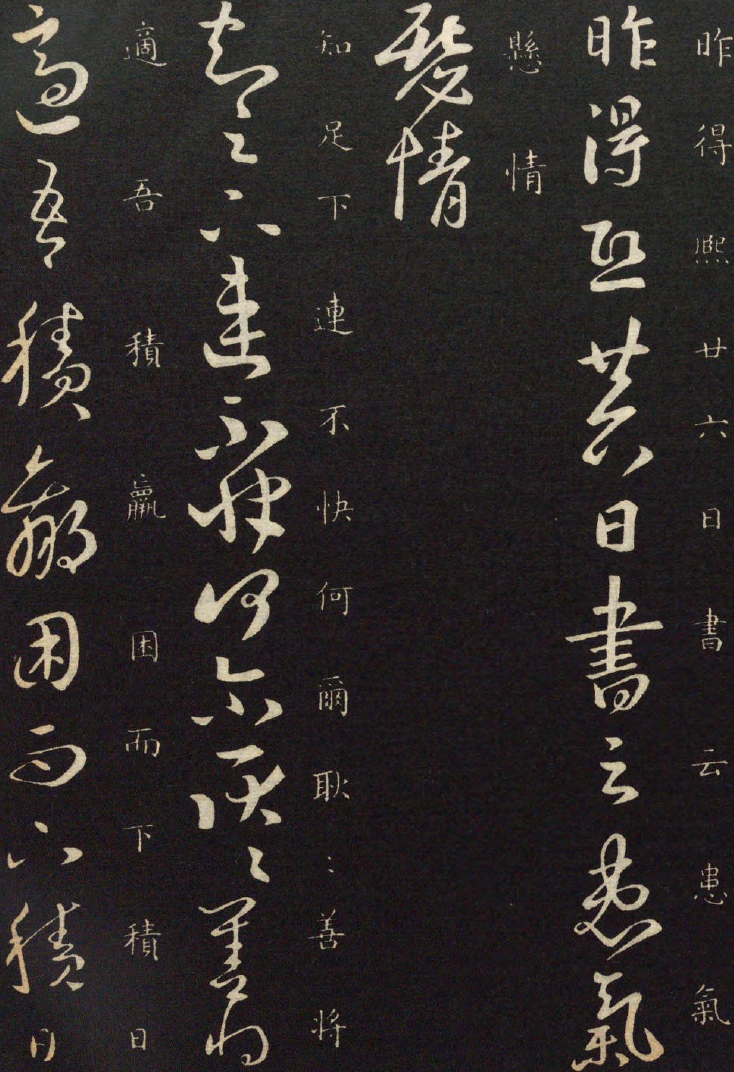 昨得熙廿六日書云患氣
昨得熙廿六日書云患氣
懸情
懸情
知足下連不快何爾耿〻善将
知足下連不快何爾耿〻善将
適吾積羸困而下積日
適吾積羸困而下積日